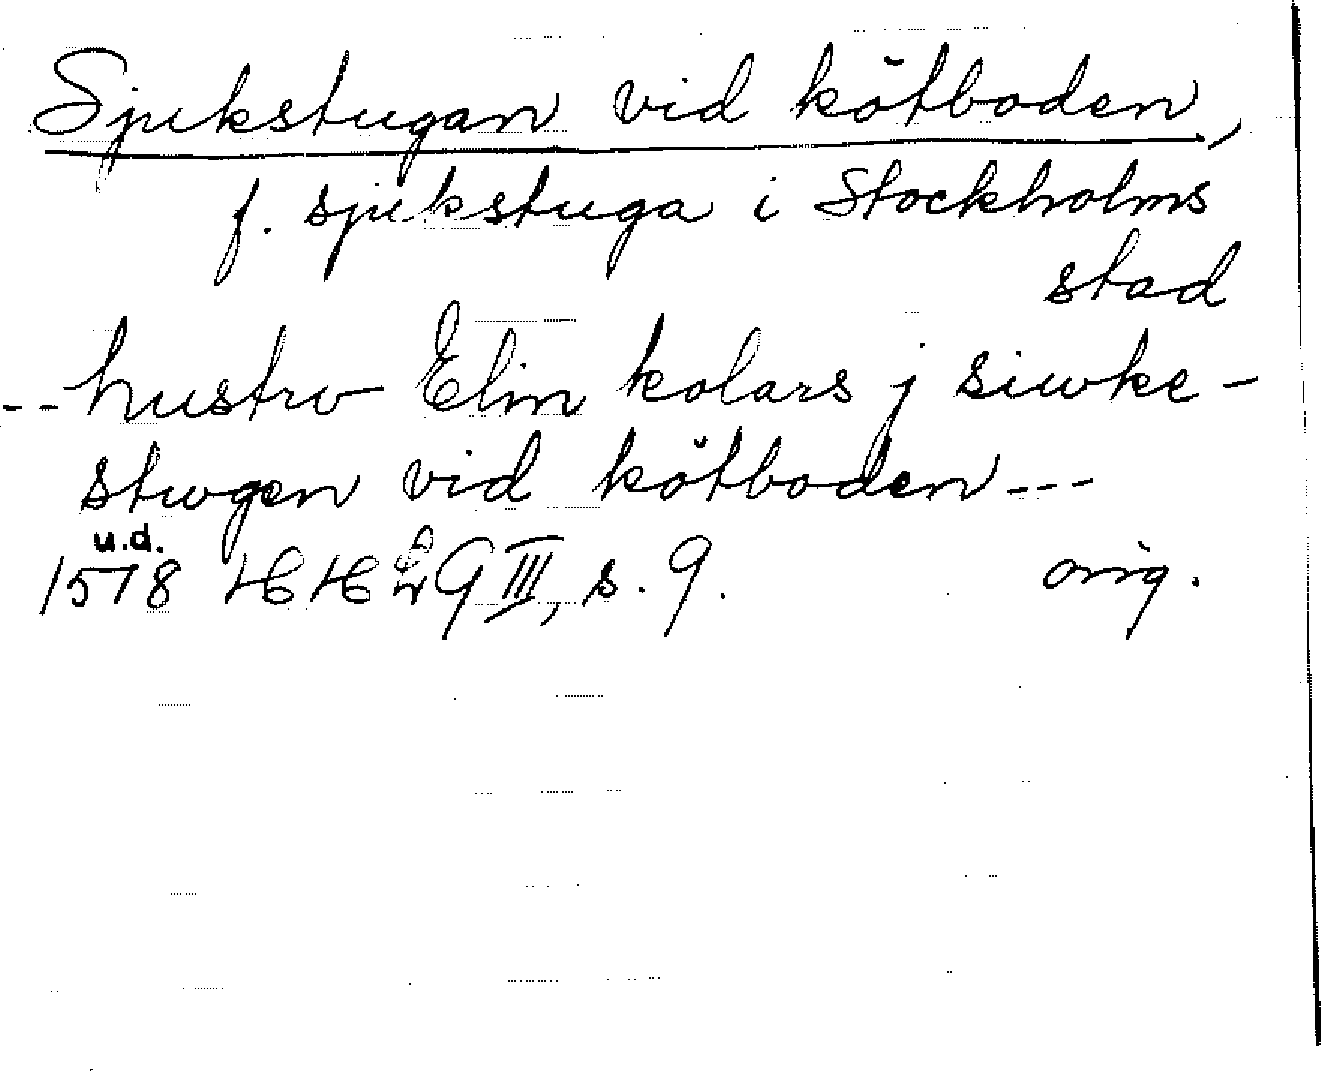 Sjukstugan vid kötboden,
f. sjukstuga i Stockholms
stad
-- hustrv Elin kolars j siwke-
stwgen vid kötboden ---
u.d.
1578 HHL 9 III, s. 9. orig.